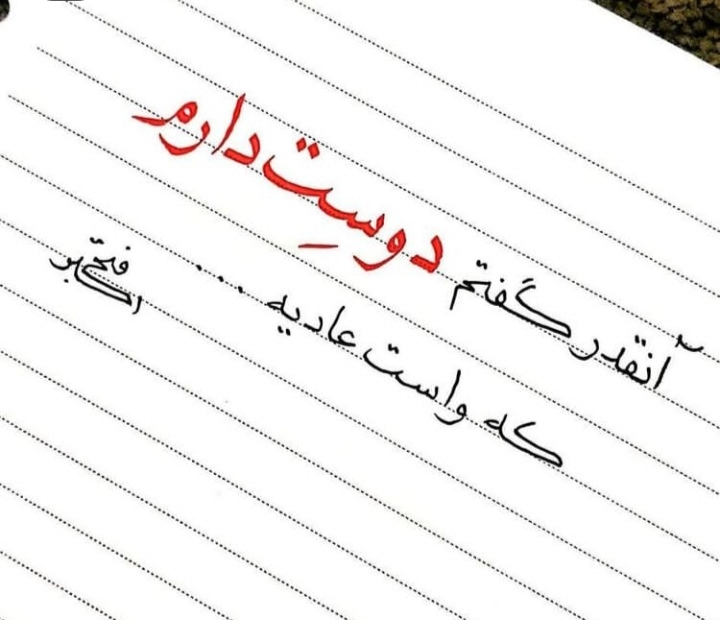 آنقدر گفتم دوسِت دارم
که واست عادیه ...
فتح
اکبر